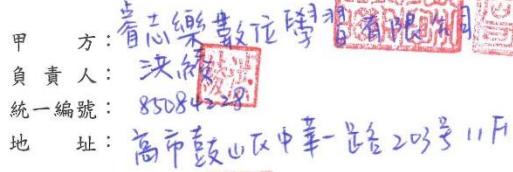 甲方：睿志樂數位學習有限公司
負責人：洪續
統一編號：85084228
地址：高市鼓山區中華一路203号11F